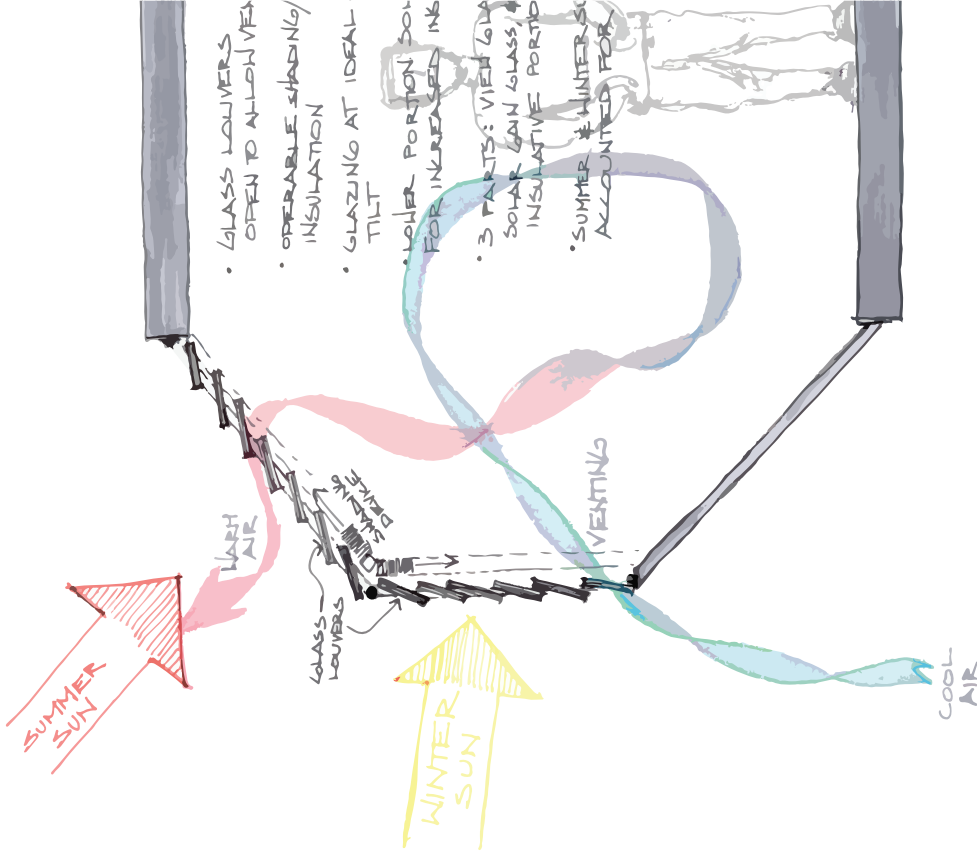 • GLASS LOUVERS
OPEN TO ALLOW VE
• OPERABLE SHADING/
INSULATION
• GLAZING AT IDEAL
TILT
• LOWER PORTION SO
FOR INCREASED INS
• 3 PARTS: VIEW GLA
SOLAR GAIN GLASS,
INSULATIVE PORTIO
• SUMMER & WINTER SU
ACCOUNTED FOR
WARM
AIR
GLASS
LOUVERS
VENTING
SUMMER
SUN
WINTER
SUN
COOL
AIR